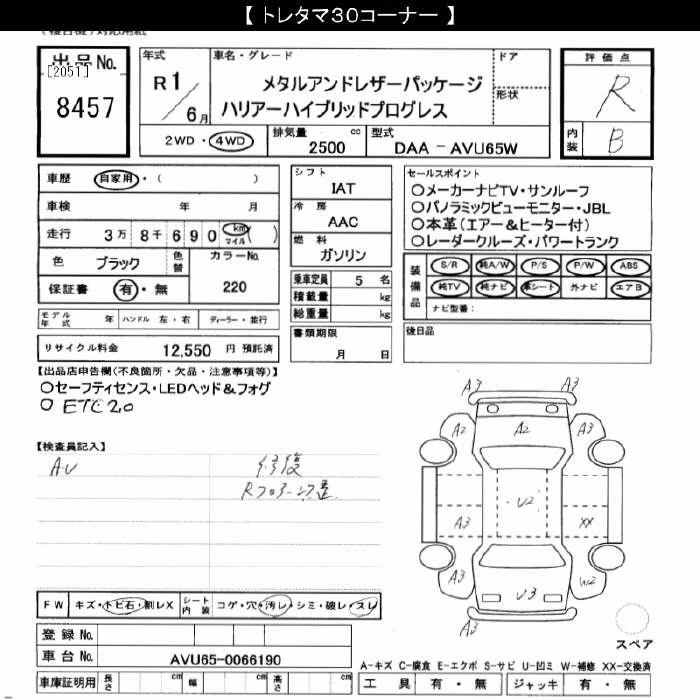 【 トレタマ30コーナー 】
出品No.
[2051]
8457
年式
R1/6月
車名・グレード
メタルアンドレザーパッケージ
ハリアーハイブリッドプログレス
ドア
形状
評価点
R
内装
B
2WD・4WD
排気量
2500 cc
型式
DAA - AVU65W
車歴 自家用・( )
車検 年 月
走行 3万8千690 km マイル ( )
色 ブラック 色替 カラーNo.
保証書 有・無 220
シフト
IAT
冷房
AAC
燃料
ガソリン
乗車定員 5 名
積載量 kg
総重量 kg
書類期限
月 日
セールスポイント
○メーカーナビTV・サンルーフ
○パノラミックビューモニター・JBL
○本革(エアー&ヒーター付)
○レーダークルーズ・パワートランク
装備品
S/R 純A/W P/S P/W ABS
純TV 純ナビ 革シート 外ナビ エアB
ナビ型番:
モデル年式 年 ハンドル 左・右 ディーラー・並行
リサイクル料金 12,550 円 預託済
後日品
【出品店申告欄(不良箇所・欠品・注意事項等)】
○セーフティセンス・LEDヘッド&フォグ
○ ETC2.0
【検査員記入】
A.U 修復
A3 A3
A2 A2 A3
U2
A3 XX
A3 U3 W2
A3
FW キズ・トビ石・割レX シート内装 コゲ・穴・汚レ・シミ・破レ・スレ
スペア
登録No.
車台No. AVU65-0066190
A-キズ C-腐食 E-エクボ S-サビ U-凹ミ W-補修 XX-交換済
車庫証明用 長さ cm 幅 cm 高さ cm
工具 有・無 ジャッキ 有・無